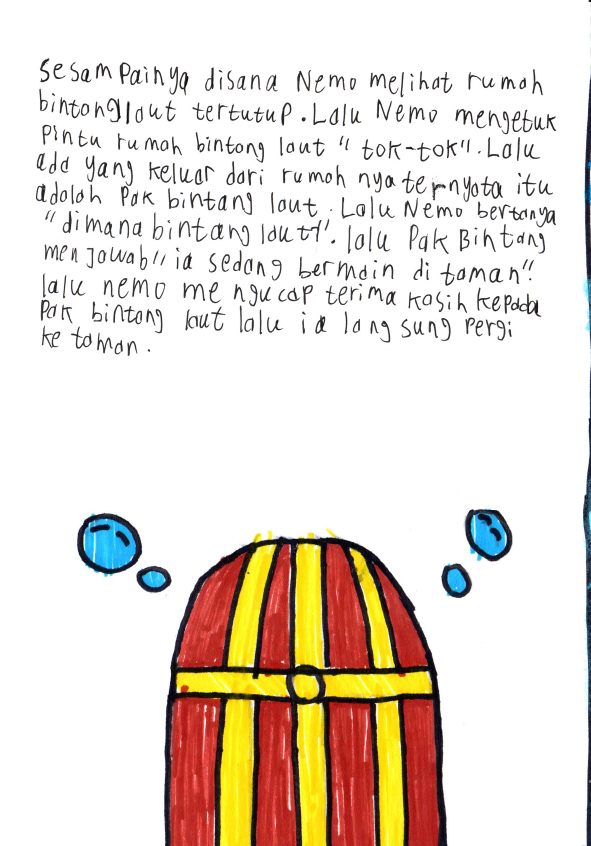 Sesampainya disana Nemo melihat rumah
bintang laut tertutup. Lalu Nemo mengetuk
Pintu rumah bintang laut "tok-tok". Lalu
ada yang keluar dari rumah nya ternyata itu
adalah Pak bintang laut. Lalu Nemo bertanya
"dimana bintang laut?". lalu Pak Bintang
menjawab" ia sedang bermain di taman".
lalu nemo mengucap terima kasih kepada
Pak bintang laut lalu ia langsung Pergi
ke taman.